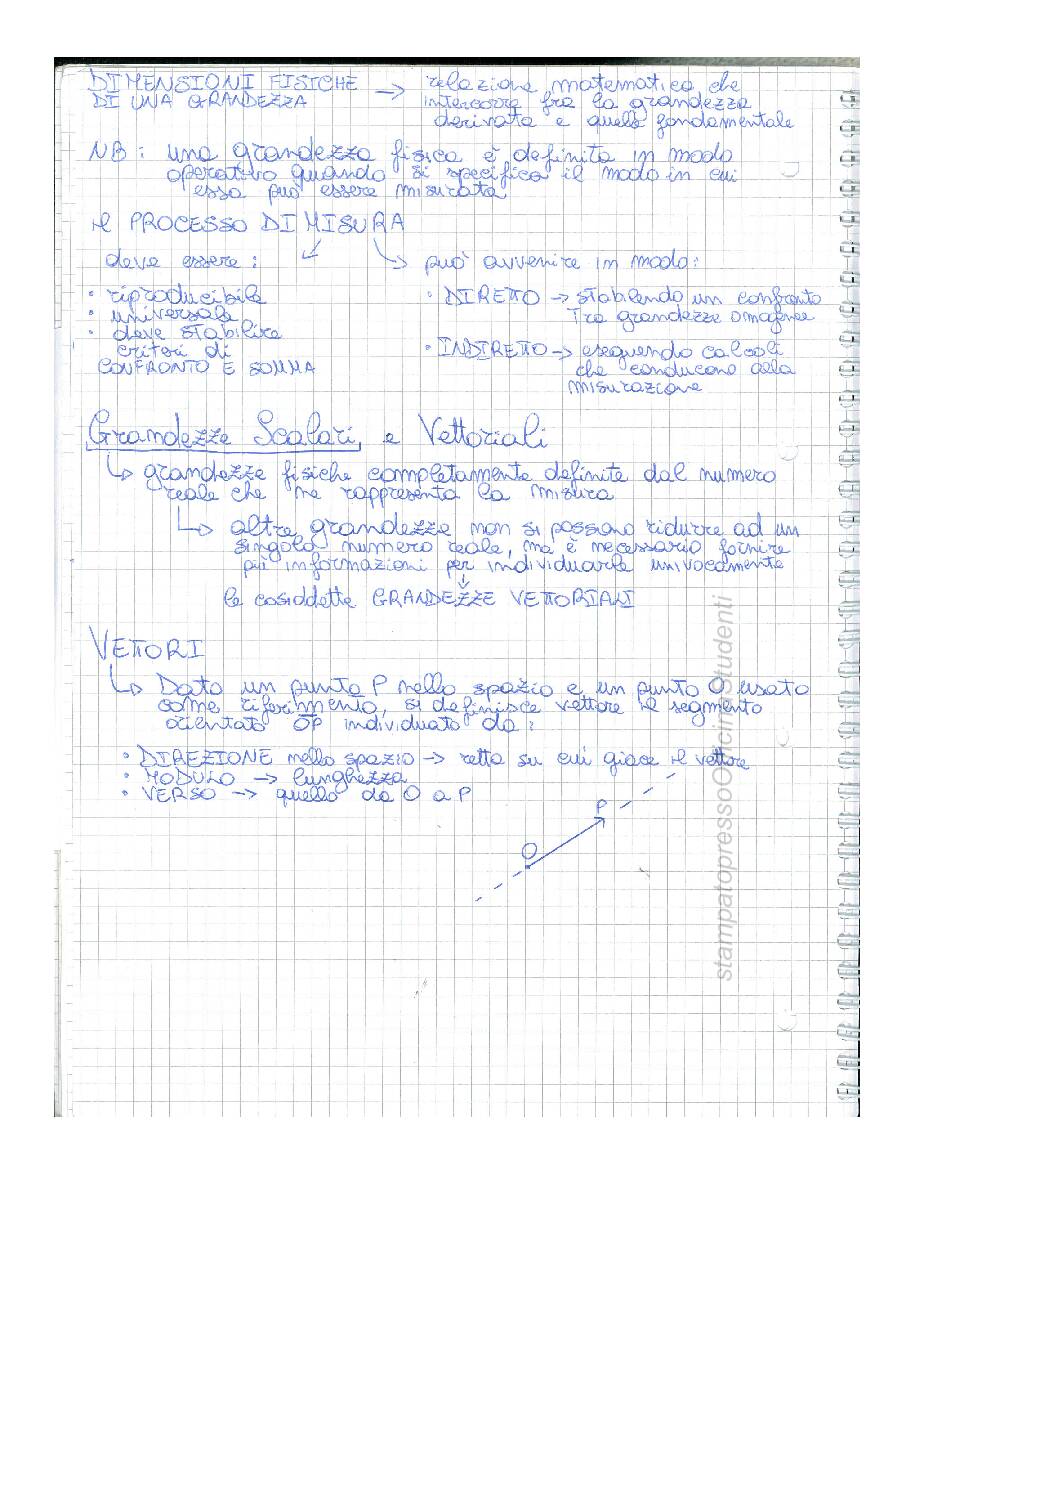 DIMENSIONI FISICHE → relazione matematica che
DI UNA GRANDEZZA intercorre fra la grandezza
derivata e quelle fondamentale
NB: una grandezza fisica è definita in modo
operativo quando si specifica il modo in cui
essa può essere misurata
Il PROCESSO DI MISURA
deve essere:
• riproducibile
• universale
• deve stabilire
criteri di
CONFRONTO E SOMMA
può avvenire in modo:
• DIRETTO → stabilendo un confronto
Tra grandezze omogenee
• INDIRETTO → eseguendo calcoli
che conducono alla
misurazione
Grandezze Scalari e Vettoriali
↳ grandezze fisiche completamente definite dal numero
reale che ne rappresenta la misura
↳ altre grandezze non si possono ridurre ad un
singolo numero reale, ma è necessario fornire
più informazioni per individuarle univocamente
↓
le cosiddette GRANDEZZE VETTORIALI
VETTORI
↳ Dato un punto P nello spazio e un punto O usato
come riferimento, si definisce vettore il segmento
orientato OP individuato da:
• DIREZIONE nello spazio → retta su cui giace il vettore
• MODULO → lunghezza
• VERSO → quello da O a P
P
O
stampatopressoOfficinaStudenti